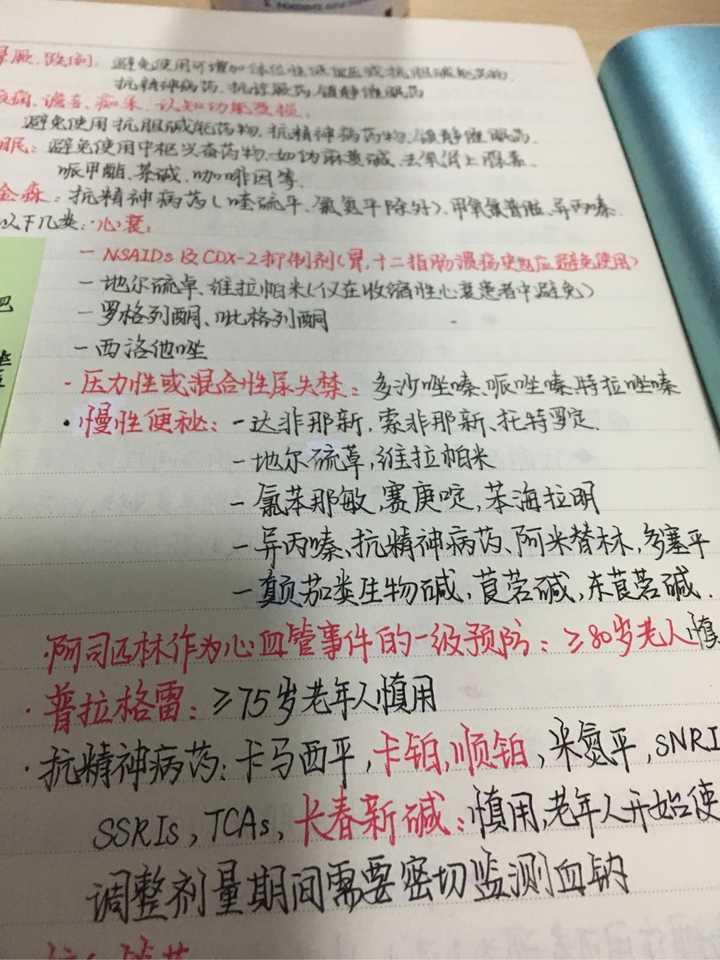 晕厥、跌倒：避免使用可增加体位性低血压或抗胆碱能药物、
抗精神病药、抗惊厥药、镇静催眠药
谵妄、痴呆、认知功能受损：
避免使用抗胆碱能药物、抗精神病药物、镇静催眠药.
眠：避免使用中枢兴奋药物，如伪麻黄碱、去氧肾上腺素、
哌甲酯、茶碱、咖啡因等.
金森：抗精神病药（喹硫平、氯氮平除外）、甲氧氯普胺、异丙嗪.
以下几类：心衰：
- NSAIDs及COX-2抑制剂（胃，十二指肠溃疡史也应避免使用）
- 地尔硫卓、维拉帕米（仅在收缩性心衰患者中避免）
- 罗格列酮、吡格列酮
- 西洛他唑
· 压力性或混合性尿失禁：多沙唑嗪、哌唑嗪、特拉唑嗪
· 慢性便秘：- 达非那新，索非那新、托特罗定.
- 地尔硫草，维拉帕米
- 氯苯那敏，赛庚啶，苯海拉明
- 异丙嗪、抗精神病药、阿米替林，多塞平
- 颠茄类生物碱，莨菪碱，东莨菪碱.
· 阿司匹林作为心血管事件的一级预防：≥80岁老人慎
· 普拉格雷：≥75岁老年人慎用
· 抗精神病药：卡马西平，卡铂，顺铂，米氮平，SNRI
SSRIs，TCAs，长春新碱：慎用，老年人开始使
调整剂量期间需要密切监测血钠